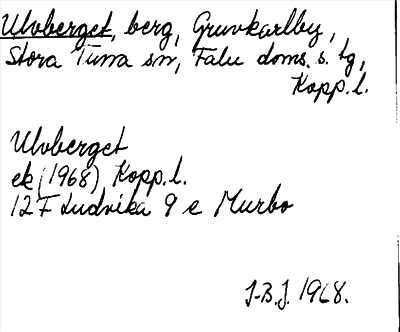 Ulvberget, berg, Gruvkarlby,
Stora Tuna sn, Falu doms. s. tg,
Kopp. l.
Ulvberget
ek (1968) Kopp. l.
12 F Ludvika 9 e Murbo
J-B.J. 1968.